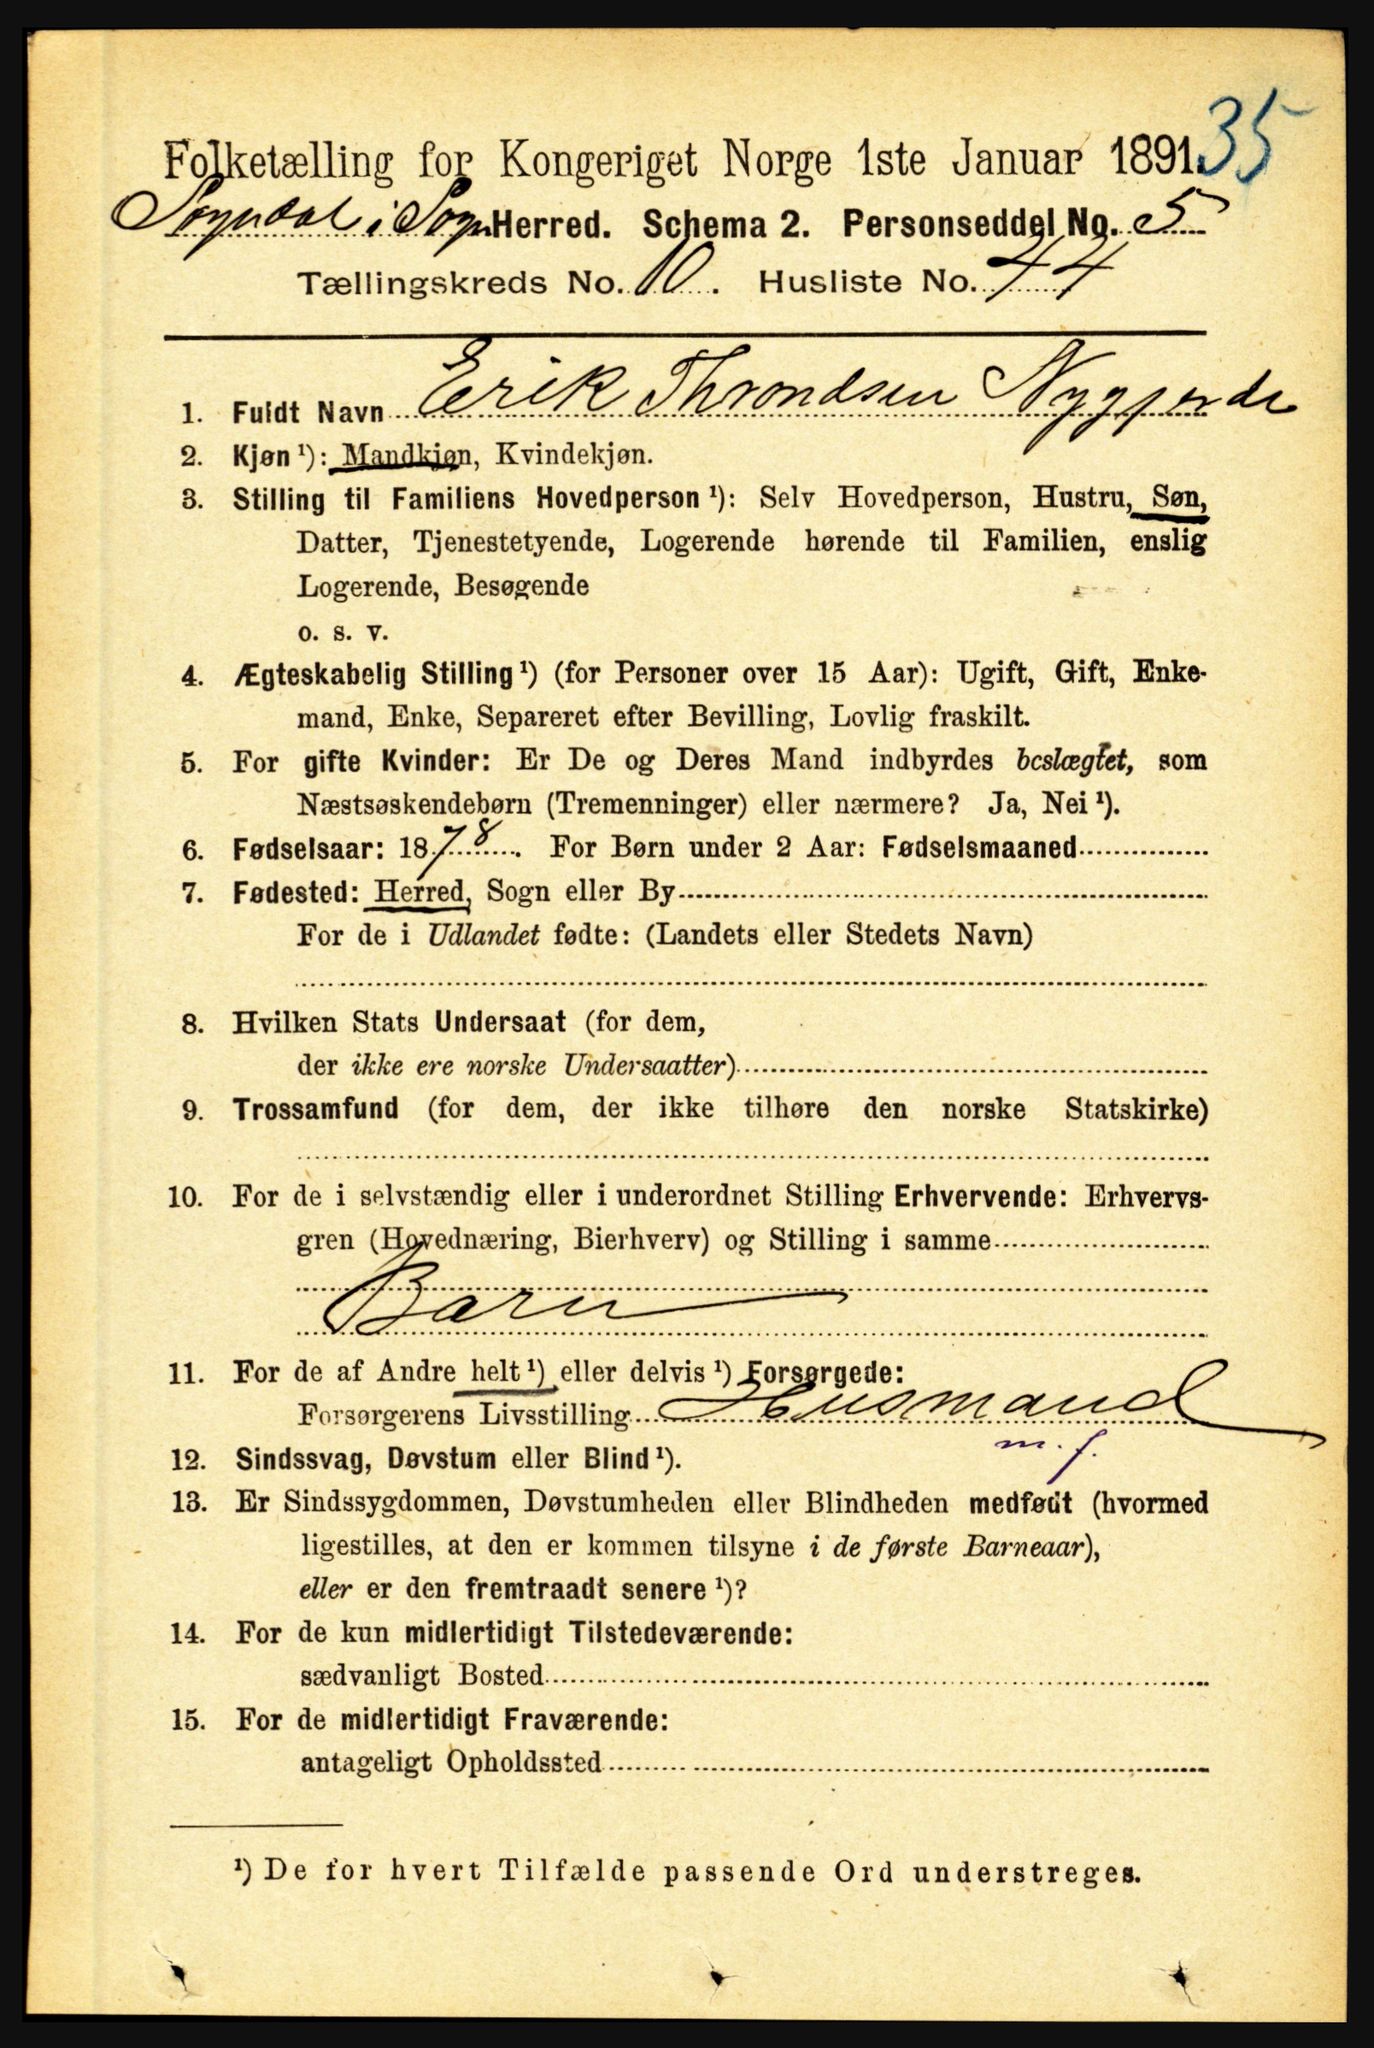 35
Folketælling for Kongeriget Norge 1ste Januar 1891.
Sogndal i Sogn Herred. Schema 2. Personseddel No. 5
Tællingskreds No. 10. Husliste No. 44
1. Fuldt Navn Erik Throndsen Nygjerde
2. Kjøn¹): Mandkjøn, Kvindekjøn.
3. Stilling til Familiens Hovedperson¹): Selv Hovedperson, Hustru, Søn,
Datter, Tjenestetyende, Logerende hørende til Familien, enslig
Logerende, Besøgende
o. s. v.
4. Ægteskabelig Stilling¹) (for Personer over 15 Aar): Ugift, Gift, Enke-
mand, Enke, Separeret efter Bevilling, Lovlig fraskilt.
5. For gifte Kvinder: Er De og Deres Mand indbyrdes beslægtet, som
Næstsøskendebørn (Tremenninger) eller nærmere? Ja, Nei¹).
6. Fødselsaar: 1878. For Børn under 2 Aar: Fødselsmaaned
7. Fødested: Herred, Sogn eller By
For de i Udlandet fødte: (Landets eller Stedets Navn)
8. Hvilken Stats Undersaat (for dem,
der ikke ere norske Undersaatter)
9. Trossamfund (for dem, der ikke tilhøre den norske Statskirke)
10. For de i selvstændig eller i underordnet Stilling Erhvervende: Erhvervs-
gren (Hovednæring, Bierhverv) og Stilling i samme
Barn
11. For de af Andre helt¹) eller delvis¹) Forsørgede:
Forsørgerens Livsstilling Husmand
m. f.
12. Sindssvag, Døvstum eller Blind¹).
13. Er Sindssygdommen, Døvstumheden eller Blindheden medfødt (hvormed
ligestilles, at den er kommen tilsyne i de første Barneaar),
eller er den fremtraadt senere¹)?
14. For de kun midlertidigt Tilstedeværende:
sædvanligt Bosted
15. For de midlertidigt Fraværende:
antageligt Opholdssted
¹) De for hvert Tilfælde passende Ord understreges.